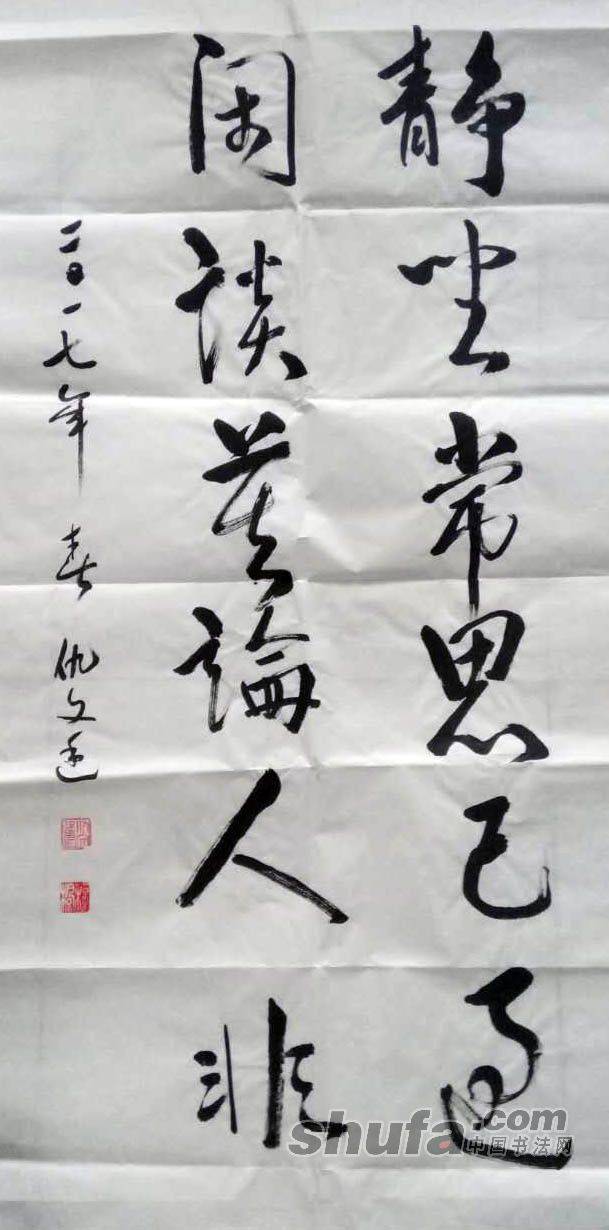 静坐常思己过
闲谈莫論人非
二〇一七年 春 仇文
shufa.com
中国书法网